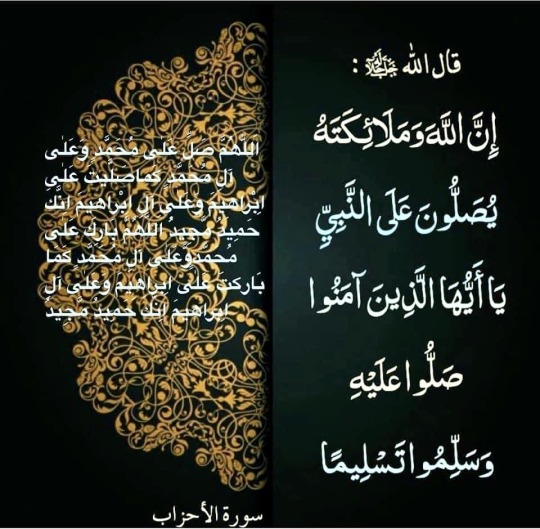 قال الله ﷻ :
إِنَّ اللَّهَ وَمَلَائِكَتَهُ
يُصَلُّونَ عَلَى النَّبِيِّ
يَا أَيُّهَا الَّذِينَ آمَنُوا
صَلُّوا عَلَيْهِ
وَسَلِّمُوا تَسْلِيمًا
اَللّٰهُمَّ صَلِّ عَلٰى مُحَمَّدٍ وَعَلٰى
آلِ مُحَمَّدٍ كَمَا صَلَّيْتَ عَلٰى
اِبْرَاهِيمَ وَعَلٰى آلِ اِبْرَاهِيمَ اِنَّكَ
حَمِيدٌ مَّجِيدٌ اَللّٰهُمَّ بَارِكْ عَلٰى
مُحَمَّدٍ وَّعَلٰى آلِ مُحَمَّدٍ كَمَا
بَارَكْتَ عَلٰى اِبْرَاهِيمَ وَعَلٰى آلِ
اِبْرَاهِيمَ اِنَّكَ حَمِيدٌ مَّجِيدٌ
سورة الأحزاب